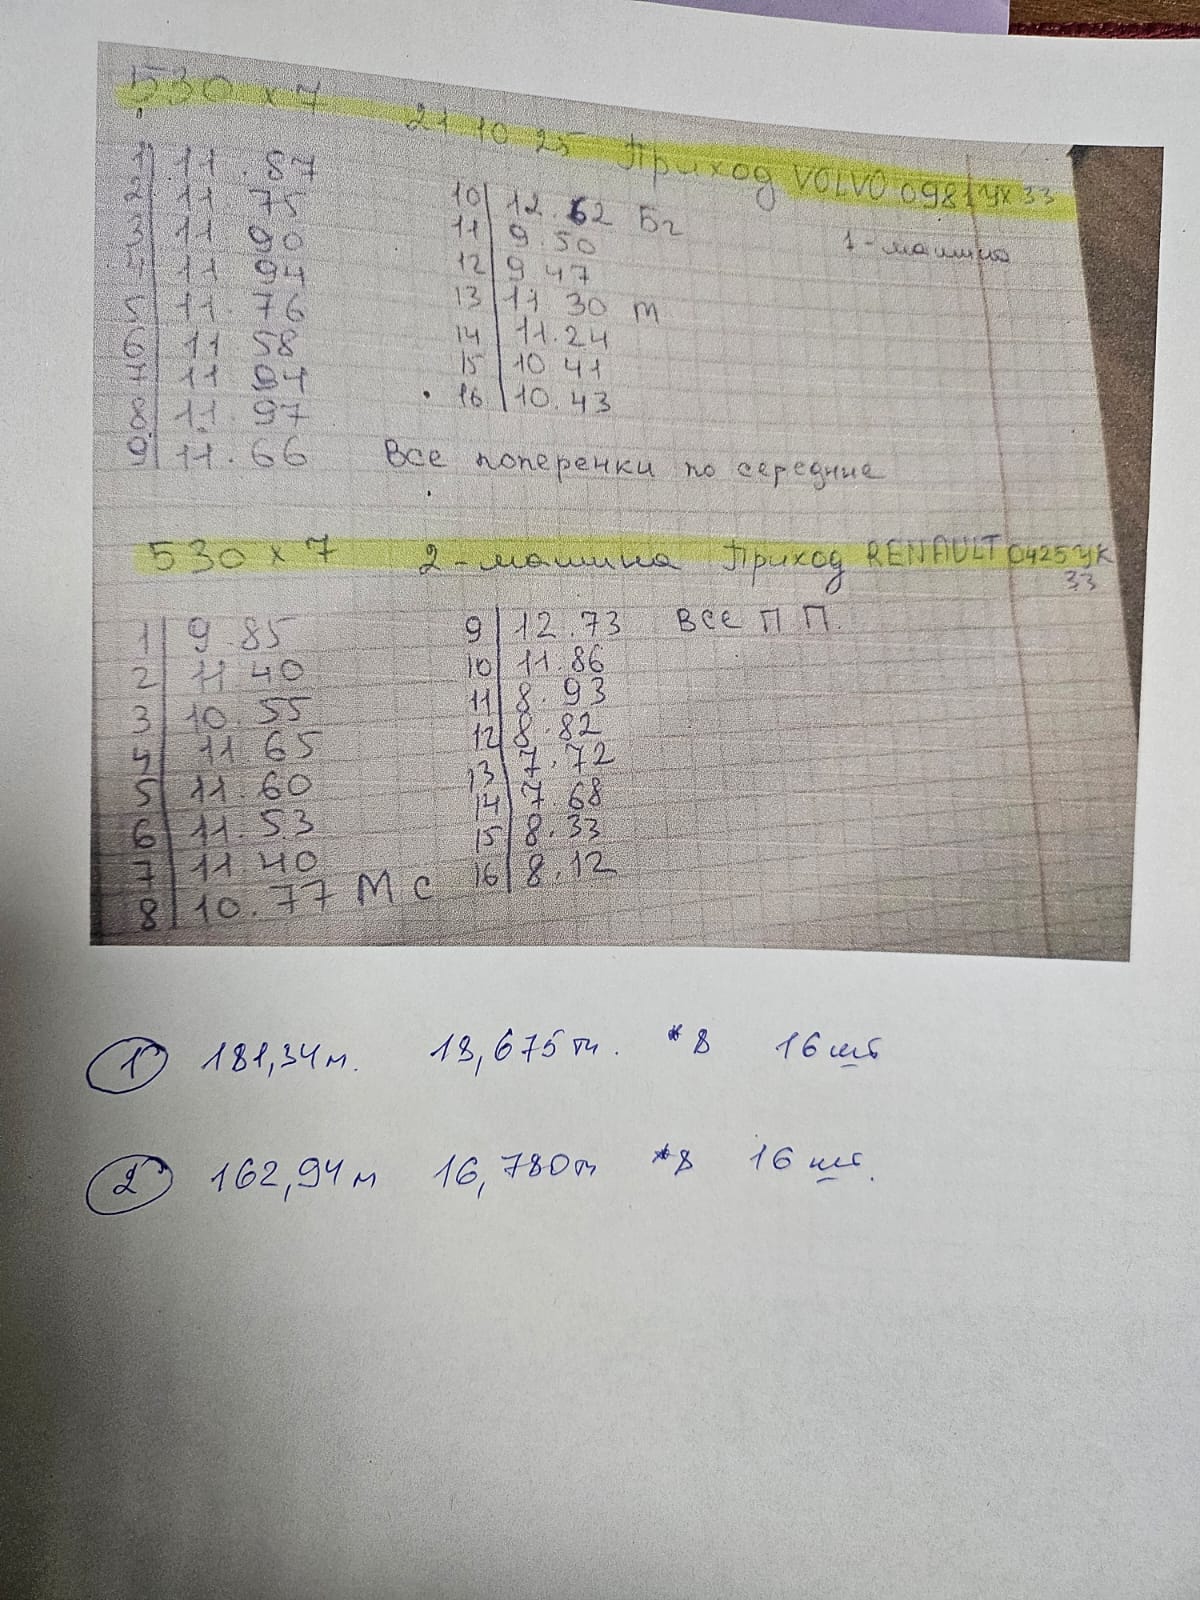 530 x 7 21 10 25 Приход VOLVO 0981 УХ 33
1-машина
1 11.87
2 11 75
3 11 90
4 11 94
5 11.76
6 11 58
7 11 94
8 11.97
9 11.66
10 12.62 Бг
11 9.50
12 9.47
13 11 30 т
14 11.24
15 10 41
16 10.43
Все поперенки по середние
530 x 7 2-машина Приход RENAULT 0425 УК
33
1 9.85
2 11 40
3 10.55
4 11 65
5 11.60
6 11.53
7 11.40
8 10.77 М С
9 12.73 Все П П.
10 11.86
11 8.93
12 8.82
13 7.72
14 7.68
15 8.33
16 8.12
1 181,34м. 18,675т. *8 16 шт
2 162,94м 16,780т *8 16 шт.